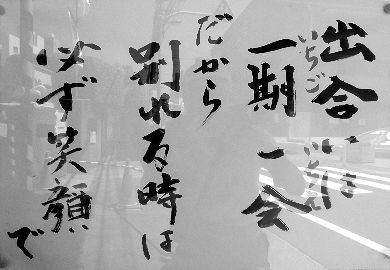 出会いは
一期一会
いちごいちえ
だから
別れる時は
必ず笑顔で